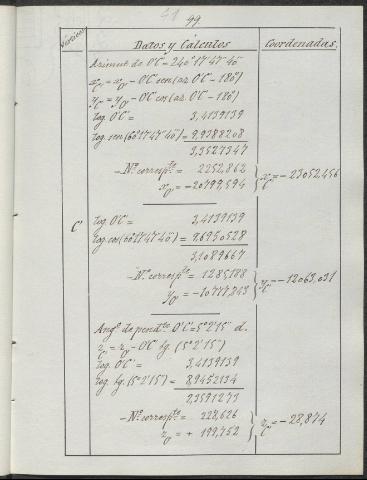 99.
Vértices
Datos y Cálculos
Coordenadas.
C
Azimut de O'C = 240°17'47"40
x_C = x_O' - O'C sen (az. O'C - 180°)
y_C = y_O' - O'C cos (az. O'C - 180°)
log. O'C = 3,4139139
log. sen (60°17'47"40) = 9,9388208
3,3527347
- Nº corresp.te = 2252,862
x_O' = -20799,594
x_C = -23052,456
log. O'C = 3,4139139
log. cos (60°17'47"40) = 9,6950528
3,1089667
- Nº corresp.te = 1285,188
y_O' = -10777,843
y_C = -12063,031
Ang.º de pend.te O'C = 5°2'15" d.
z_C = z_O' - O'C tg. (5°2'15")
log. O'C = 3,4139139
log. tg. (5°2'15") = 8,9452134
2,3591273
- Nº corresp.te = 228,626
z_O' = + 199,752
z_C = -28,874